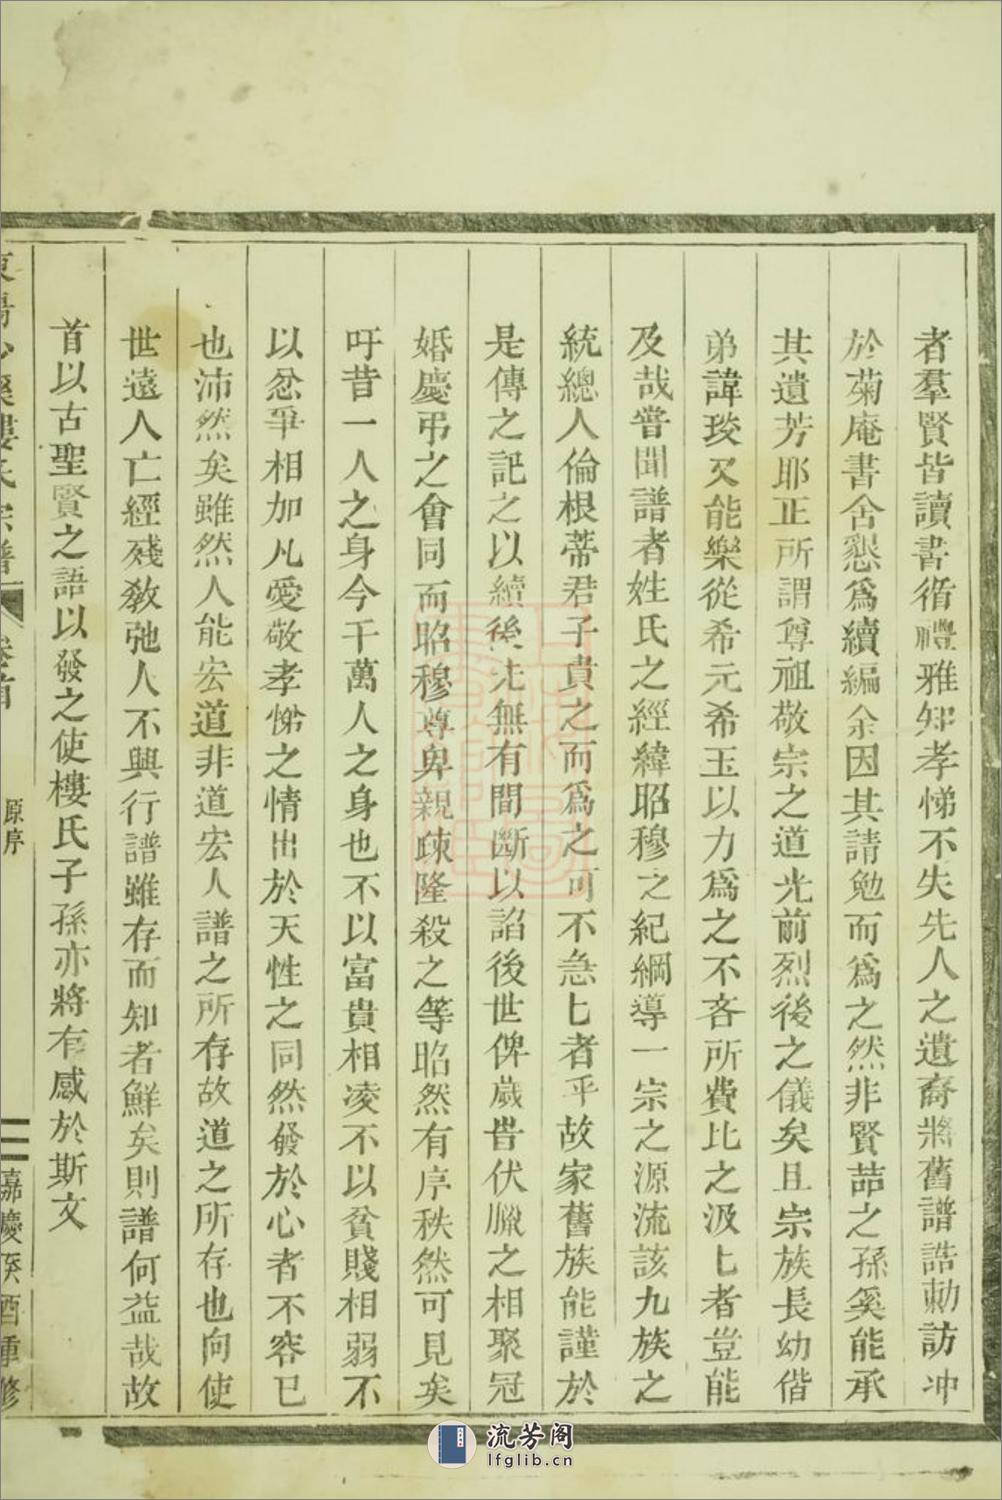 者羣賢皆讀書循禮雅知孝悌不失先人之遺裔將舊譜誥勅訪冲
於菊庵書舍懇爲續編余因其請勉而爲之然非賢喆之孫奚能承
其遺芳耶正所謂尊祖敬宗之道光前烈後之儀矣且宗族長幼偕
弟諱琰又能樂從希元希玉以力爲之不吝所費比之汲匕者豈能
及哉甞聞譜者姓氏之經緯昭穆之紀綱導一宗之源流該九族之
統總人倫根蒂君子貴之而爲之可不急匕者乎故家舊族能謹於
是傳之記之以續後先無有間斷以詔後世俾歲昔伏臘之相聚冠
婚慶弔之會同而昭穆尊卑親疎隆殺之等昭然有序秩然可見矣
吁昔一人之身今千萬人之身也不以富貴相凌不以貧賤相弱不
以忿爭相加凡愛敬孝悌之情出於天性之同然發於心者不容已
也沛然矣雖然人能宏道非道宏人譜之所存故道之所存也向使
世遠人亡經殘敎弛人不興行譜雖存而知者鮮矣則譜何益哉故
首以古聖賢之語以發之使樓氏子孫亦將有感於斯文
東陽少溪樓氏宗譜 卷首 原序 三 嘉慶癸酉重修
流芳阁
lfglib.cn